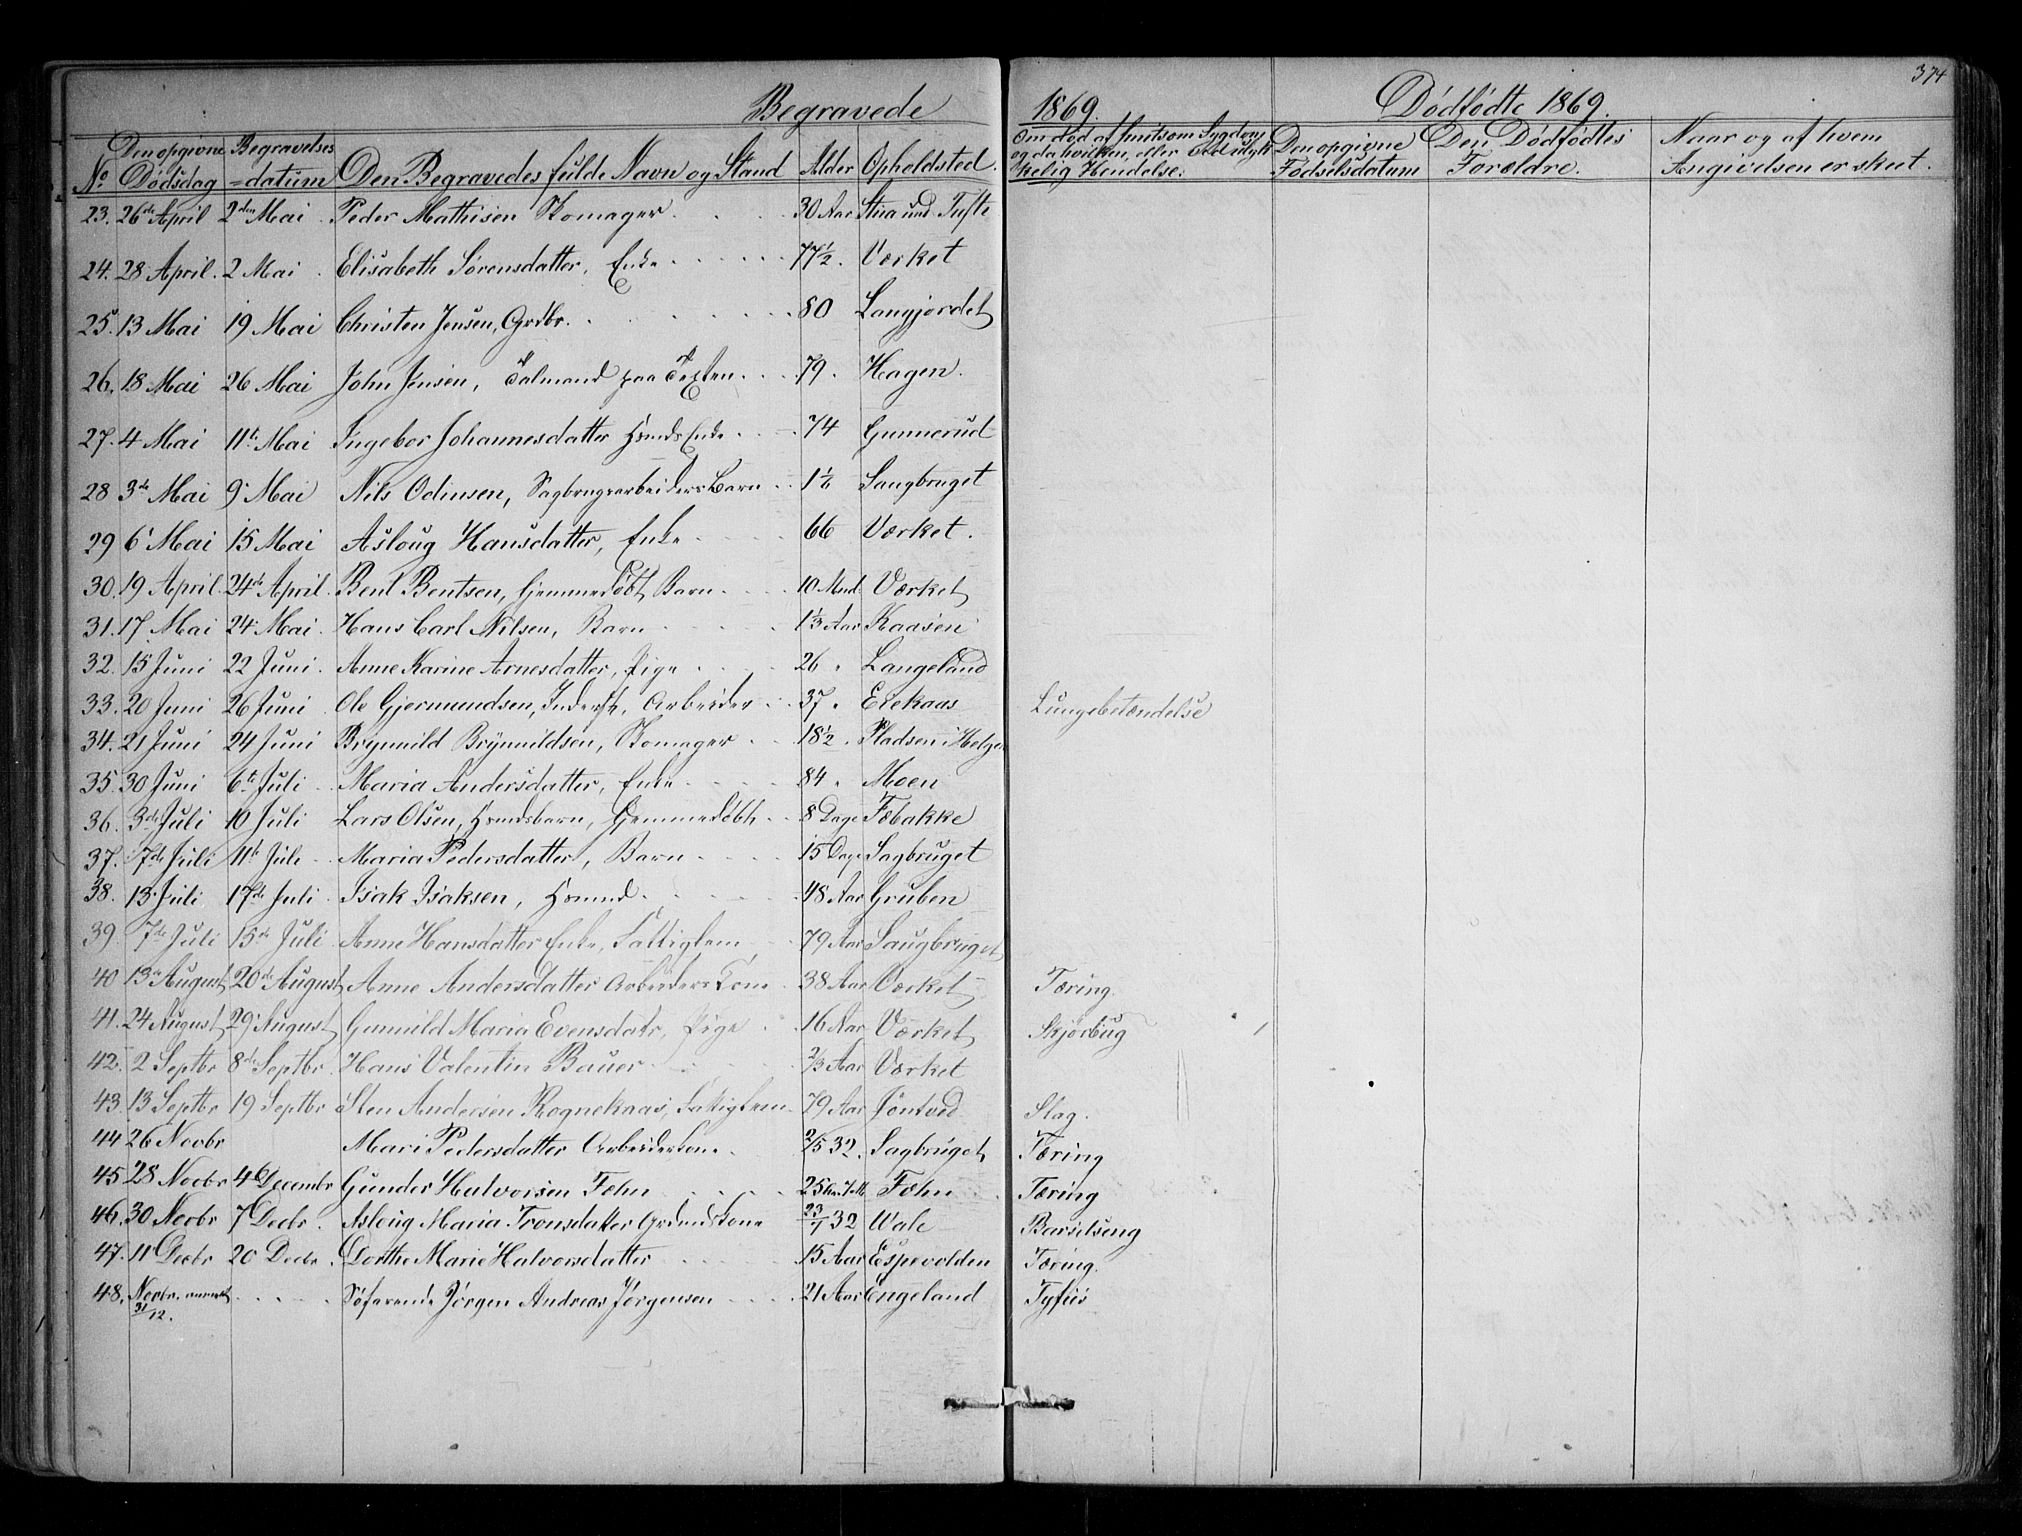 374
Begravede 1869. Dödfödte 1869.
No Den opgivne Dödsdag Begravelses =datum Den Begravedes fulde Navn og Stand Alder Opholdsted. Om död af smitsom Sygdom og da hvilken, eller ved ulyk kelig Hendelse. Den opgivne Födselsdatum Den Dödfödtes Forældre. Naar og af hvem Angivelsen er skeet.
23. 26de April 2den Mai Peder Mathisen Skomager 30 Aar Stua und. Tufte
24. 28 April. 2 Mai Elisabeth Sörensdatter, Enke 77½. Værket
25. 13 Mai 19 Mai Christen Jensen, Grdbr. 80 Langjordet
26. 18 Mai 26 Mai John Jensen, Dalmand paa 79. Hagen.
27. 4 Mai 11te Mai Ingebor Johannesdatter Hsmds Enke 74 Gunnerud
28 3de Mai 9. Mai Nils Odinsen, Sagbrugsarbeiders Barn Saugbruget
29 6. Mai 15 Mai Asloug Hansdatter, Enke 66 Værket.
30. 19 April. 24de April. Bent Bentsen, hjemmedöbt Barn 10 Mnd. Værket
31. 17. Mai 24. Mai. Hans Carl Nilsen, Barn 1⅓ Aar Kaasen
32. 15 Juni 22 Juni. Anne Karine Arnesdatter, Pige 26 " Langeland
33. 20 Juni 26 Juni Ole Gjermundsen, Inderst, Arbeider 37 " Erekaas Lungebetændelse
34. 21 Juni 24 Juni Brynnild Brynnildsen, Skomager 18½. Pladsen i
35. 30 Juni 6te Juli Maria Andersdatter, Enke 84 " Moen
36. 3de Juli 10 Juli Lars Olsen, Hsmdsbarn, Hjemmedöbt 8 Dage Fæbakke
37. 7de Juli 11te Juli Maria Pedersdatter, Barn 15 Dage Sagbruget
38. 13. Juli 17de Juli Isak Isaksen, Hsmnd 48 Aar Gruben
39. 7de Juli 15de Juli Anne Hansdatter Enke, Fattiglem 79 Aar Saugbruget
40 13de August 20de August Anne Andersdatter Arbeiders Kone 38 Aar Værket Tæring.
41. 24 August 29. August Gunnild Maria Evensdatr, Pige 16 Aar Værket Skjörbug
42. 2 Septbr 8de Septbr. Hans Valentin Bauer ⅔ Aar Værket
43. 13 Septbr 19 Septbr Sten Andersen Rognekaas, Fattiglem 79 Aar Jöntved Slag.
44 26 Novbr Mari Pedersdatter Arbeiderkone 2/5 32. Sagbruget Tæring
45 28 Novbr 4 Decembr Gunder Halvorsen Fæhn 25 Aar 7 M Fæhn Tæring
46. 30 Novbr 7 Decbr. Asloug Maria Tronsdatter Grdmdskone 23/7 32 Wale Barselseng
47. 11 Decbr 20 Decbr. Dorthe Marie Halvorsdatter 15 Aar Espevolden Tæring.
48. Novbr. anmeldt 31/12. Söfarende Jörgen Andreas Jörgensen 21 Aar Engeland Tyfus